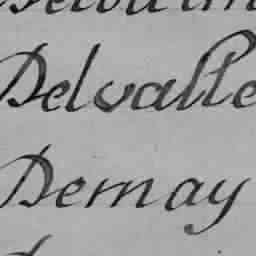 Delvalle
Demay